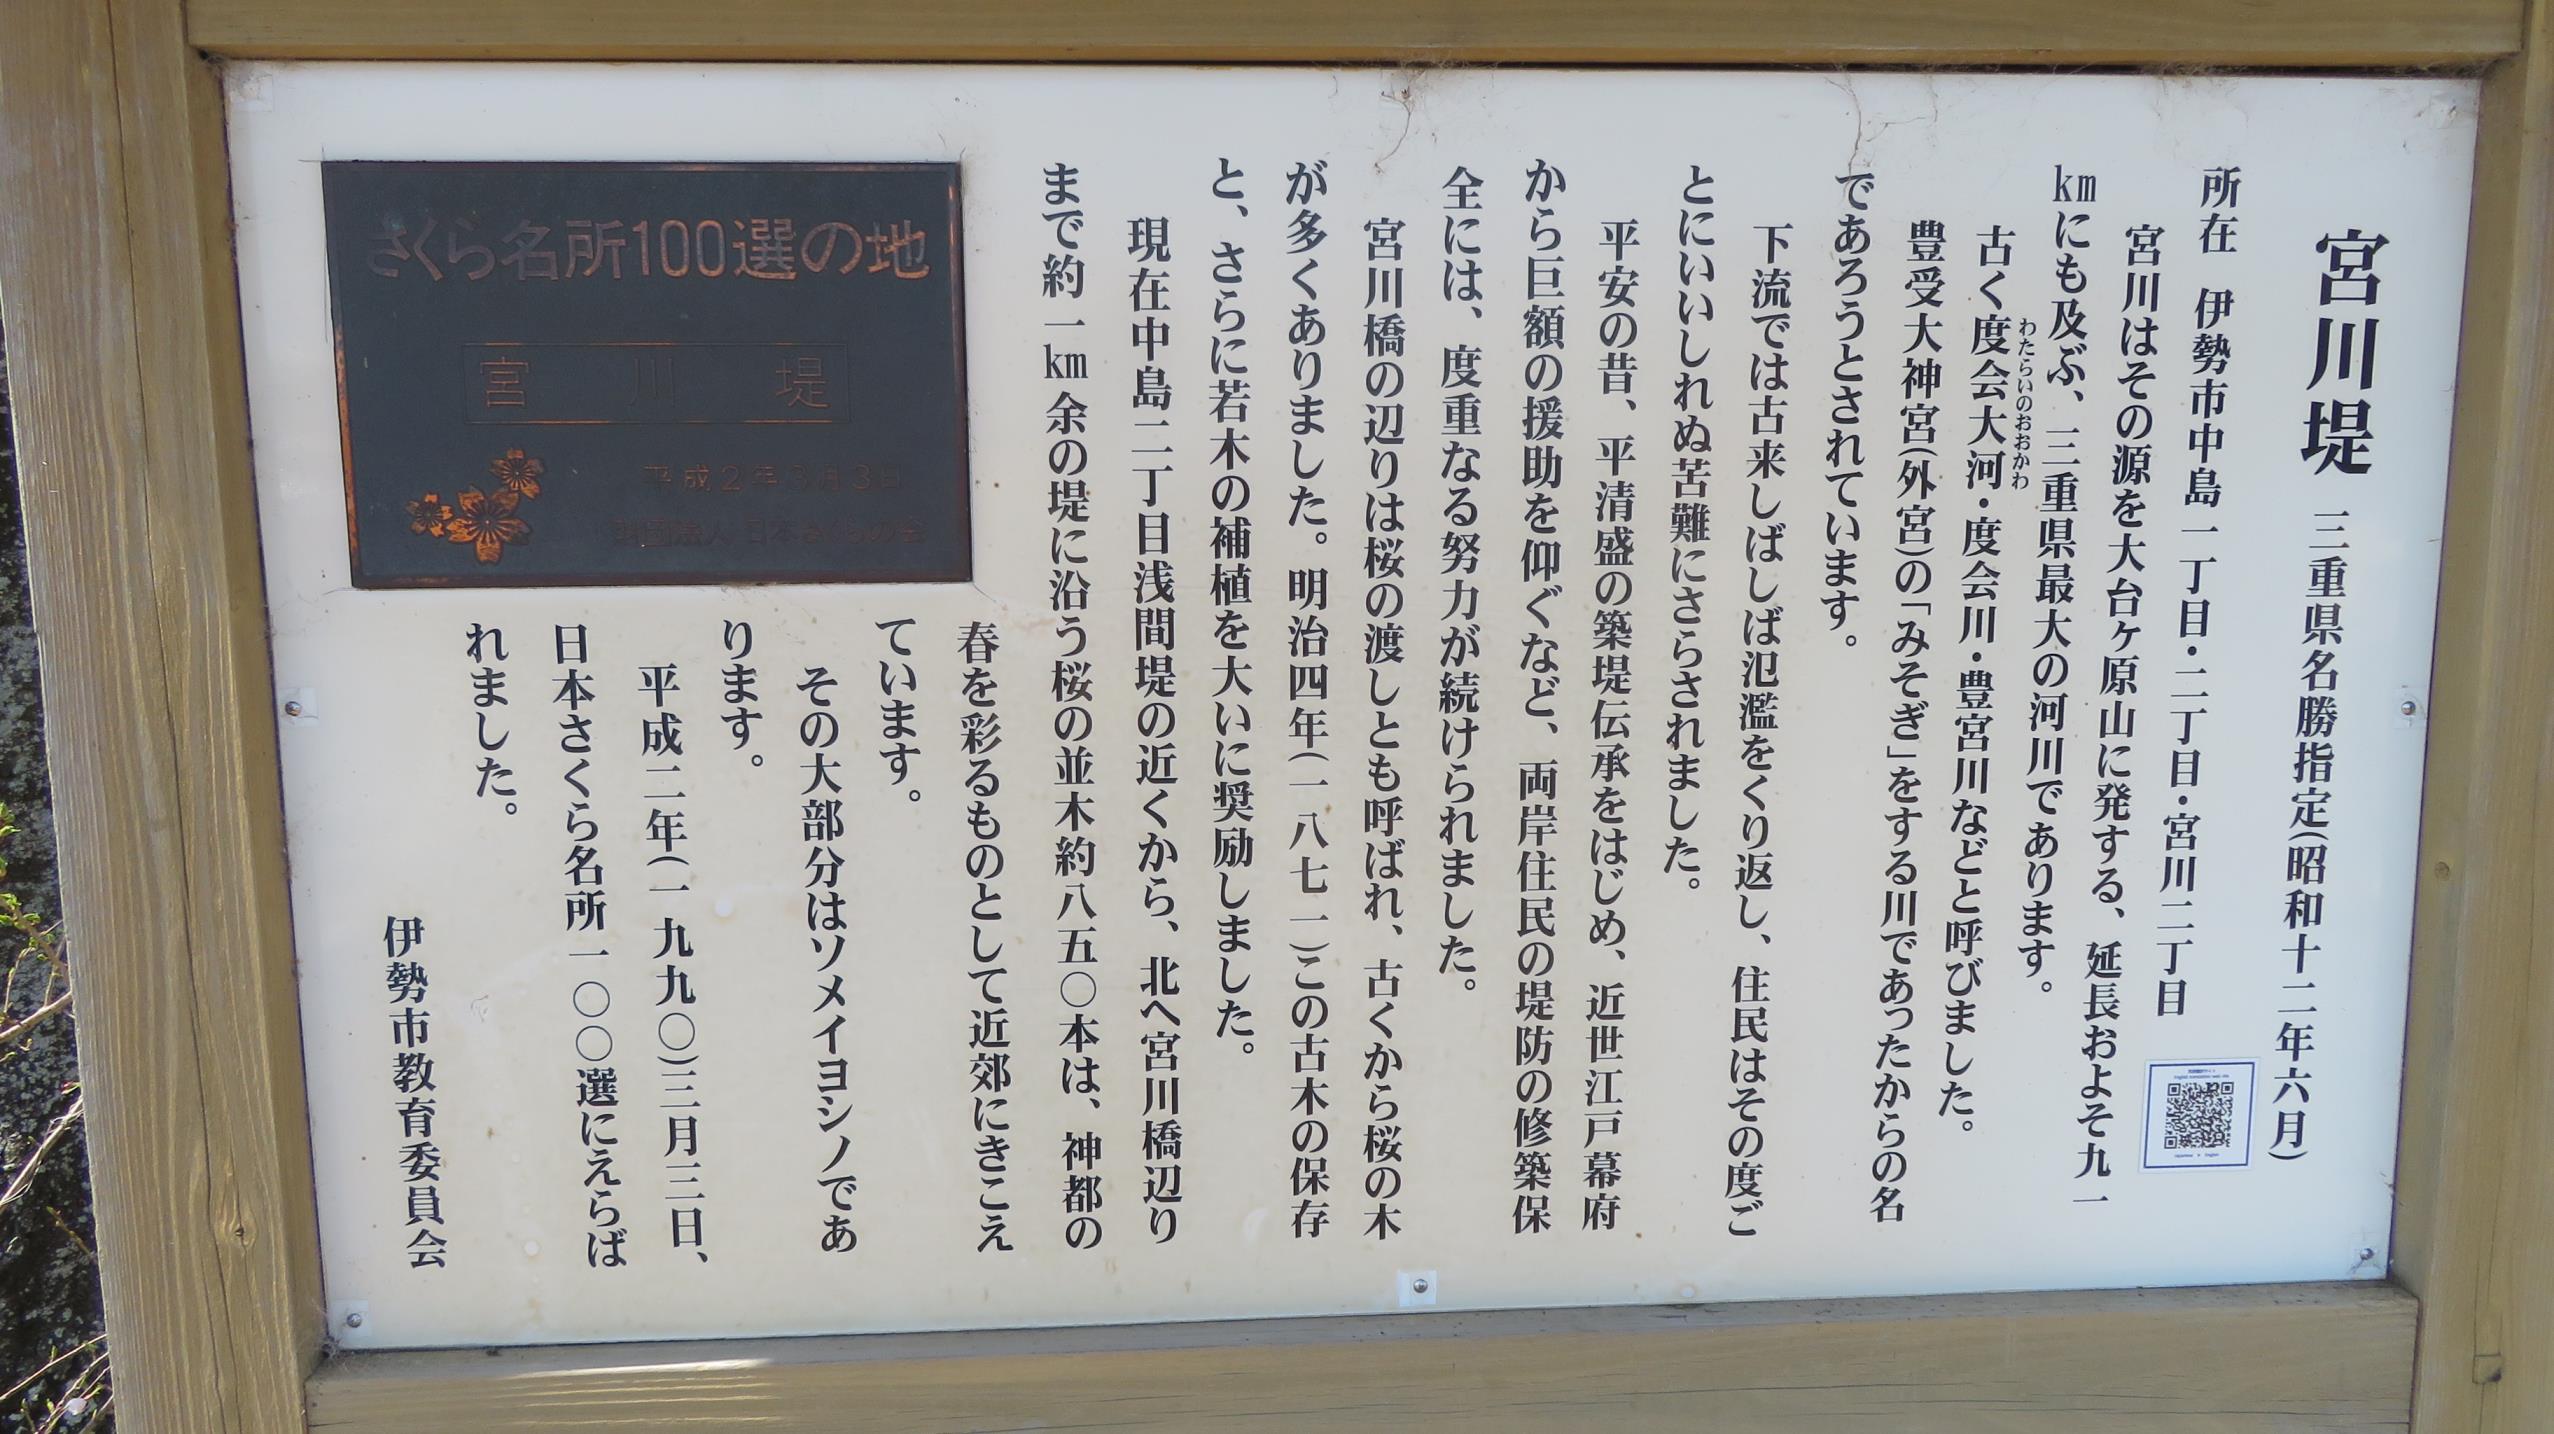 宮川堤 三重県名勝指定(昭和十二年六月)
所在 伊勢市中島一丁目・二丁目・宮川二丁目
宮川はその源を大台ヶ原山に発する、延長およそ九一
㎞にも及ぶ、三重県最大の河川であります。
わたらいのおおかわ
古く度会大河・度会川・豊宮川などと呼びました。
豊受大神宮(外宮)の「みそぎ」をする川であったからの名
であろうとされています。
下流では古来しばしば氾濫をくり返し、住民はその度ご
とにいいしれぬ苦難にさらされました。
平安の昔、平清盛の築堤伝承をはじめ、近世江戸幕府
から巨額の援助を仰ぐなど、両岸住民の堤防の修築保
全には、度重なる努力が続けられました。
宮川橋の辺りは桜の渡しとも呼ばれ、古くから桜の木
が多くありました。明治四年(一八七一)この古木の保存
と、さらに若木の補植を大いに奨励しました。
現在中島二丁目浅間堤の近くから、北へ宮川橋辺り
まで約一㎞余の堤に沿う桜の並木約八五〇本は、神都の
春を彩るものとして近郊にきこえ
ています。
その大部分はソメイヨシノであ
ります。
平成二年(一九九〇)三月三日、
日本さくら名所一〇〇選にえらば
れました。
伊勢市教育委員会
さくら名所100選の地
宮川堤
平成2年3月3日
財団法人 日本さくらの会